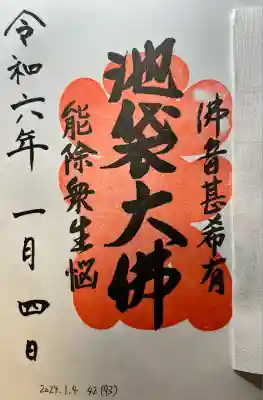 佛音甚希有
池袋大佛
能除衆生悩
令和六年 一月四日
2024.1.4 42(93)